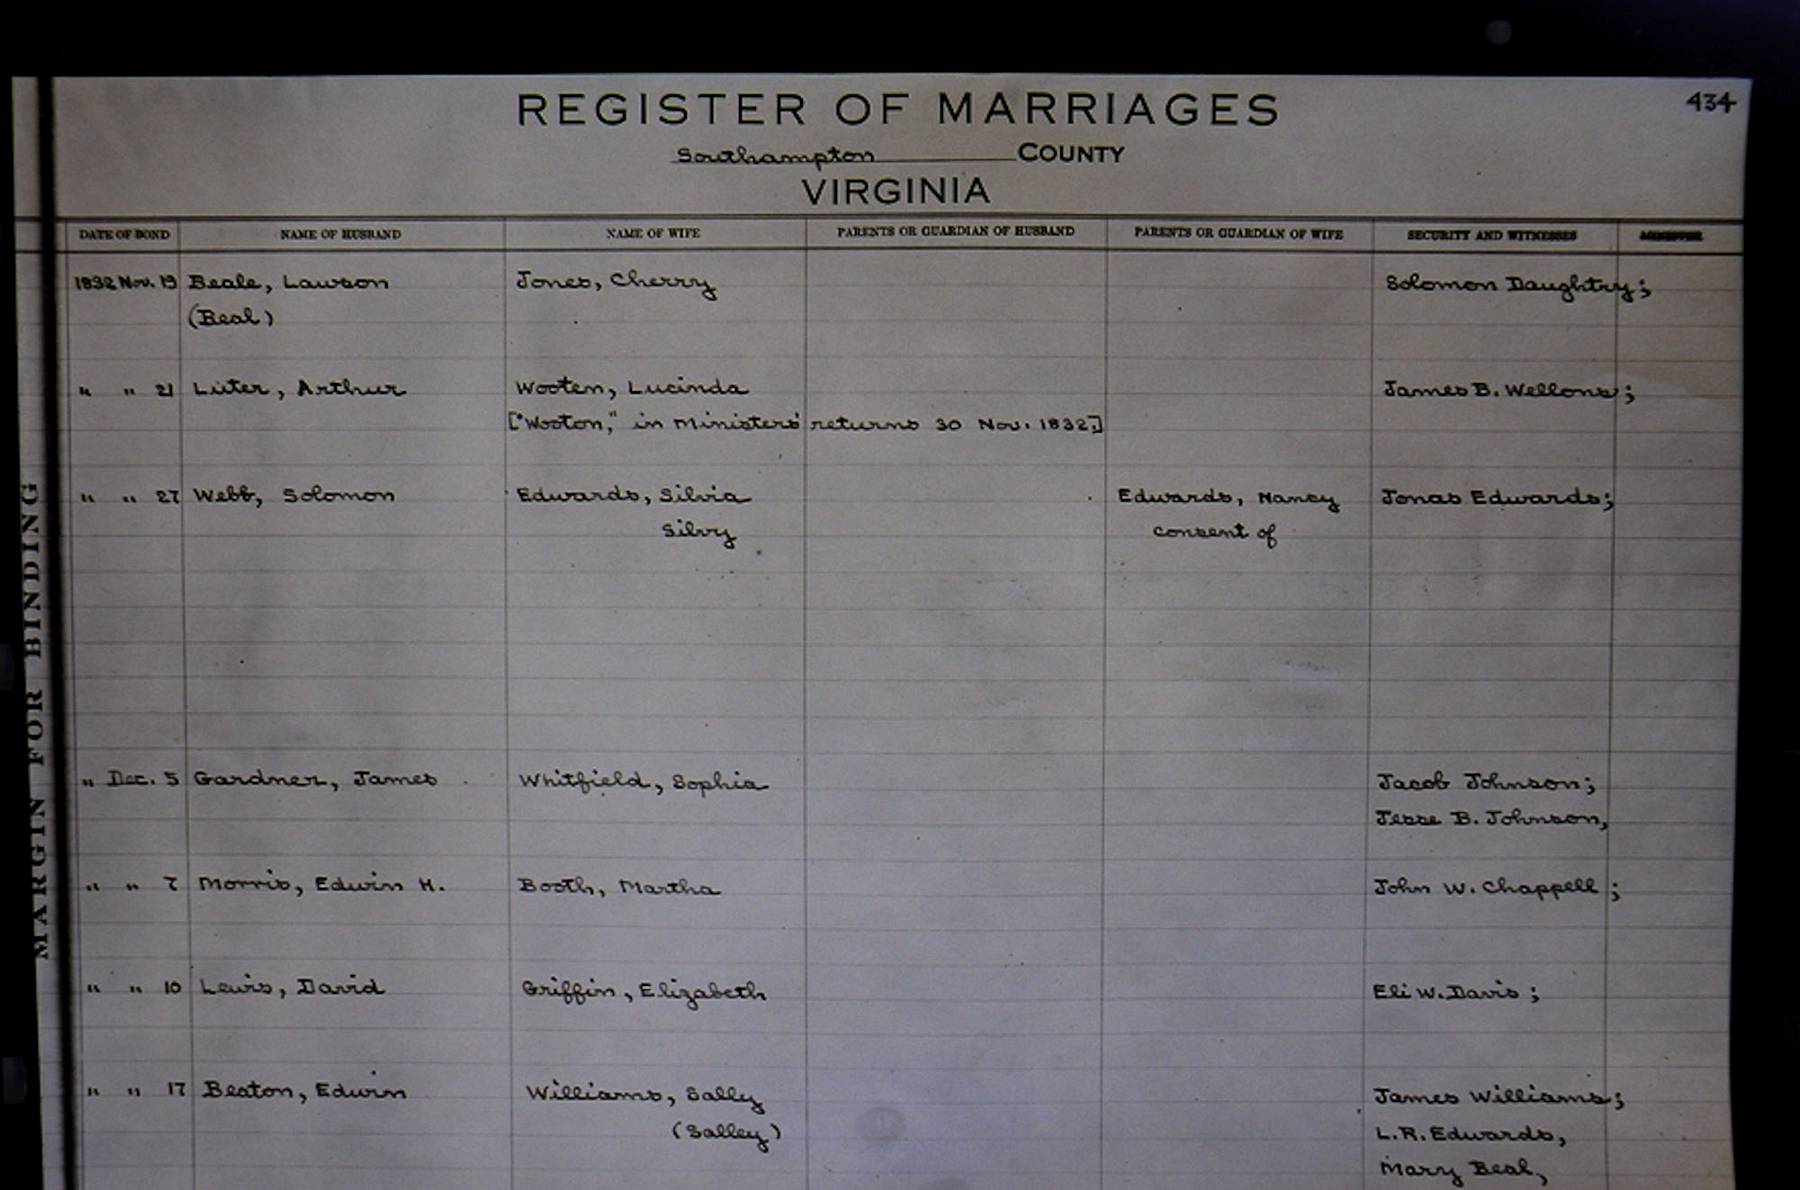 434
REGISTER OF MARRIAGES
Southampton COUNTY
VIRGINIA
DATE OF BOND NAME OF HUSBAND NAME OF WIFE PARENTS OR GUARDIAN OF HUSBAND PARENTS OR GUARDIAN OF WIFE SECURITY AND WITNESSES MINISTER
1832 Nov. 19 Beale, Lawson Jones, Cherry Solomon Daughtry;
(Beal)
" " 21 Luter, Arthur Wooten, Lucinda James B. Wellons;
["Wooton," in Ministers' returns 30 Nov. 1832.]
" " 27 Webb, Solomon Edwards, Silvia Edwards, Nancy Jonas Edwards;
Silvy consent of
" Dec. 5 Gardner, James Whitfield, Sophia Jacob Johnson;
Jesse B. Johnson,
" " 7 Morris, Edwin H. Booth, Martha John W. Chappell;
" " 10 Lewis, David Griffin, Elizabeth Eli W. Davis;
" " 17 Beaton, Edwin Williams, Sally James Williams;
(Salley) L.R. Edwards,
Mary Beal,
MARGIN FOR BINDING